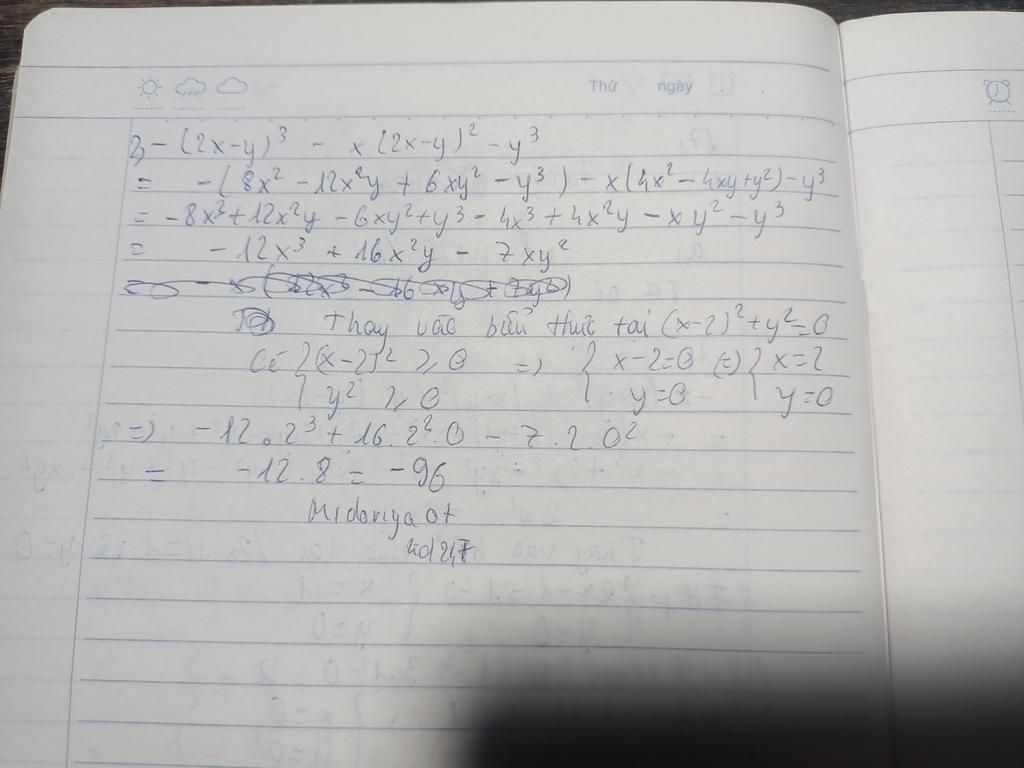 Thứ ngày
2, -(2x-y)³ - x(2x-y)² - y³
= -(8x² - 12x²y + 6xy² - y³) - x(4x² - 4xy + y²) - y³
= -8x³ + 12x²y - 6xy² + y³ - 4x³ + 4x²y - xy² - y³
= -12x³ + 16x²y - 7xy²
Thay vào biểu thức tại (x-2)² + y² = 0
Có { (x-2)² ≥ 0 => { x-2=0 (=) { x=2
{ y² ≥ 0 { y=0 { y=0
=> -12.2³ + 16.2².0 - 7.2.0²
= -12.8 = -96
Midoriya Ot